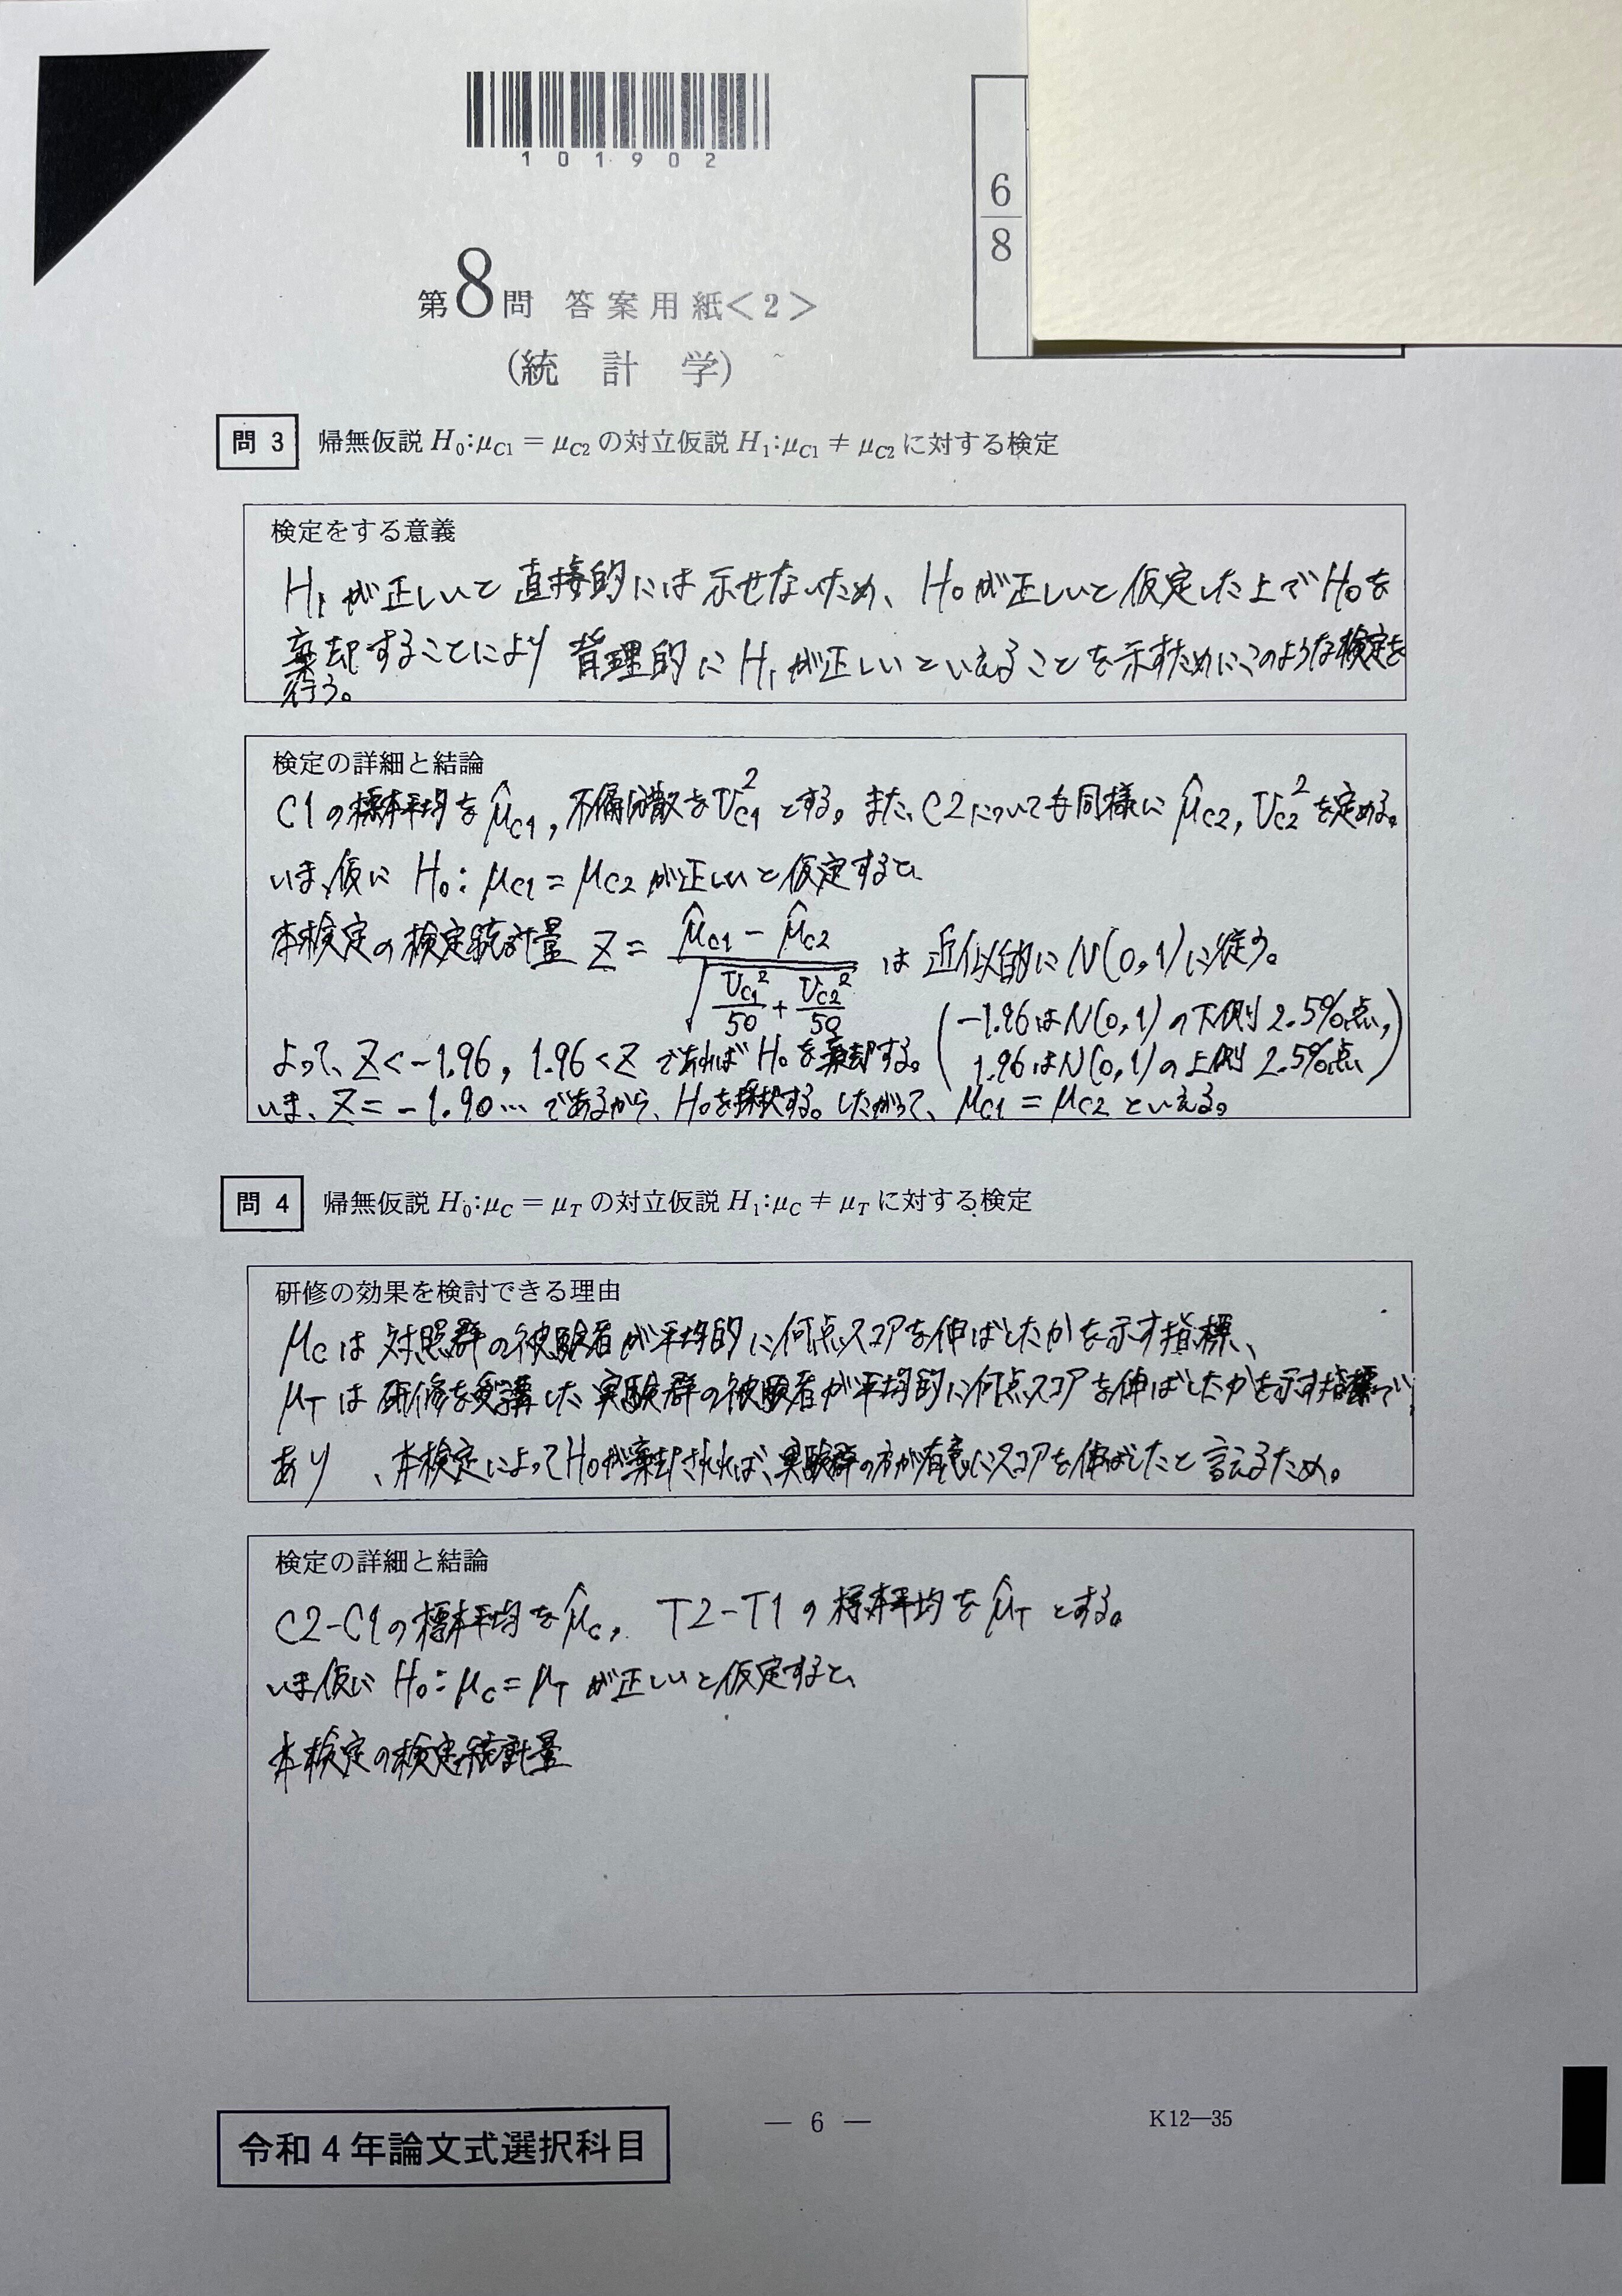 101902
6/8
第8問 答案用紙<2>
(統計学)
問3 帰無仮説 H₀:μC1 = μC2 の対立仮説 H₁:μC1 ≠ μC2 に対する検定
検定をする意義
H₁が正しいと直接的には示せないため、H₀が正しいと仮定した上でH₀を
棄却することにより背理的にH₁が正しいといえることを示すためにこのような検定を
行う。
検定の詳細と結論
C1の標本平均をμ̂C1, 不偏分散をUC1²とする。また、C2についても同様にμ̂C2, UC2²を定める。
いま、仮に H₀: μC1 = μC2 が正しいと仮定すると、
本検定の検定統計量 Z = (μ̂C1 − μ̂C2) / √(UC1²/50 + UC2²/50) は近似的にN(0,1)に従う。
よって、Z < −1.96, 1.96 < Z であればH₀を棄却する。
(−1.96はN(0,1)の下側2.5%点,
1.96はN(0,1)の上側2.5%点)
いま、Z = −1.90… であるから、H₀を採択する。したがって、μC1 = μC2 といえる。
問4 帰無仮説 H₀:μC = μT の対立仮説 H₁:μC ≠ μT に対する検定
研修の効果を検討できる理由
μCは対照群の被験者が平均的に何点スコアを伸ばしたかを示す指標、
μTは研修を受講した実験群の被験者が平均的に何点スコアを伸ばしたかを示す指標で
あり、本検定によってH₀が棄却されれば、実験群の方が有意にスコアを伸ばしたと言えるため。
検定の詳細と結論
C2−C1の標本平均をμ̂C, T2−T1の標本平均をμ̂Tとする。
いま仮に H₀: μC = μT が正しいと仮定すると、
本検定の検定統計量
— 6 —
K12—35
令和4年論文式選択科目